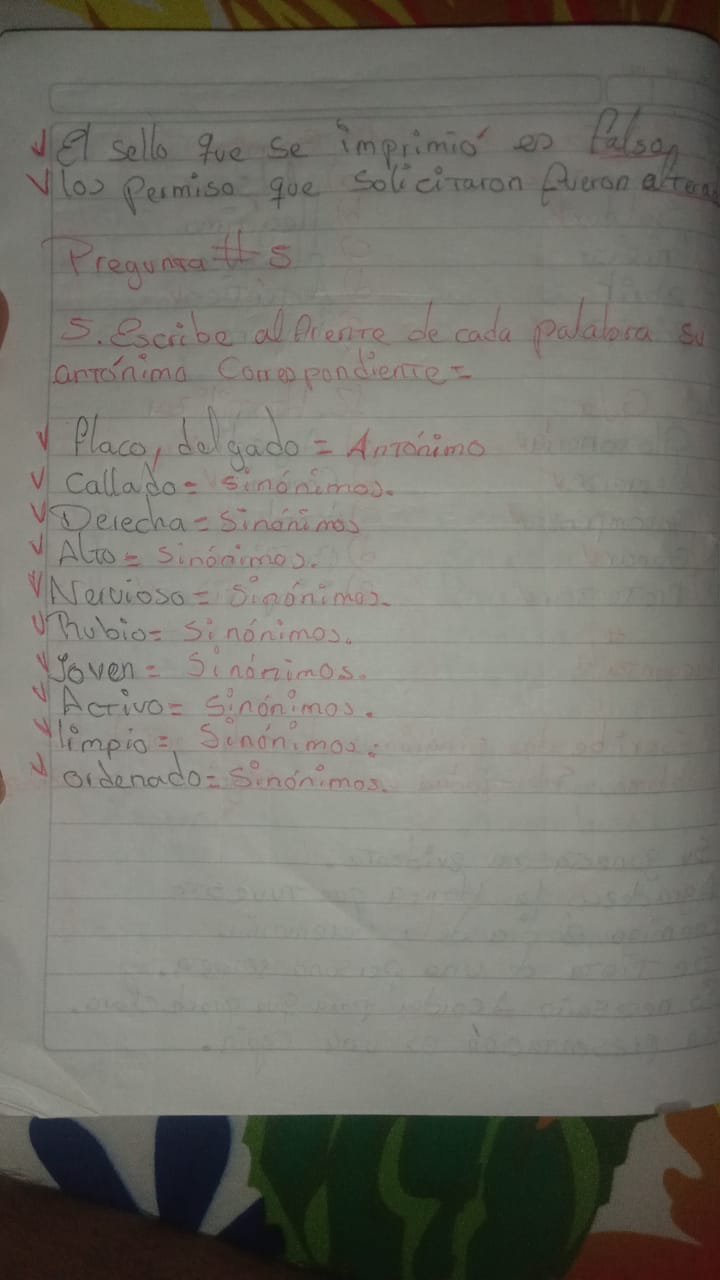 El sello que se imprimió es falso,
los permiso que solicitaron fueron altera
Pregunta # 5
5. Escribe al frente de cada palabra su
antónimo Correspondiente =
flaco, delgado = Antónimo
Callado = sinónimos.
Derecha = Sinónimos
Alto = Sinónimos.
Nervioso = Sinónimos.
Rubio = Sinónimos.
Joven = Sinónimos.
Activo = Sinónimos.
limpio = Sinónimos.
ordenado = Sinónimos.